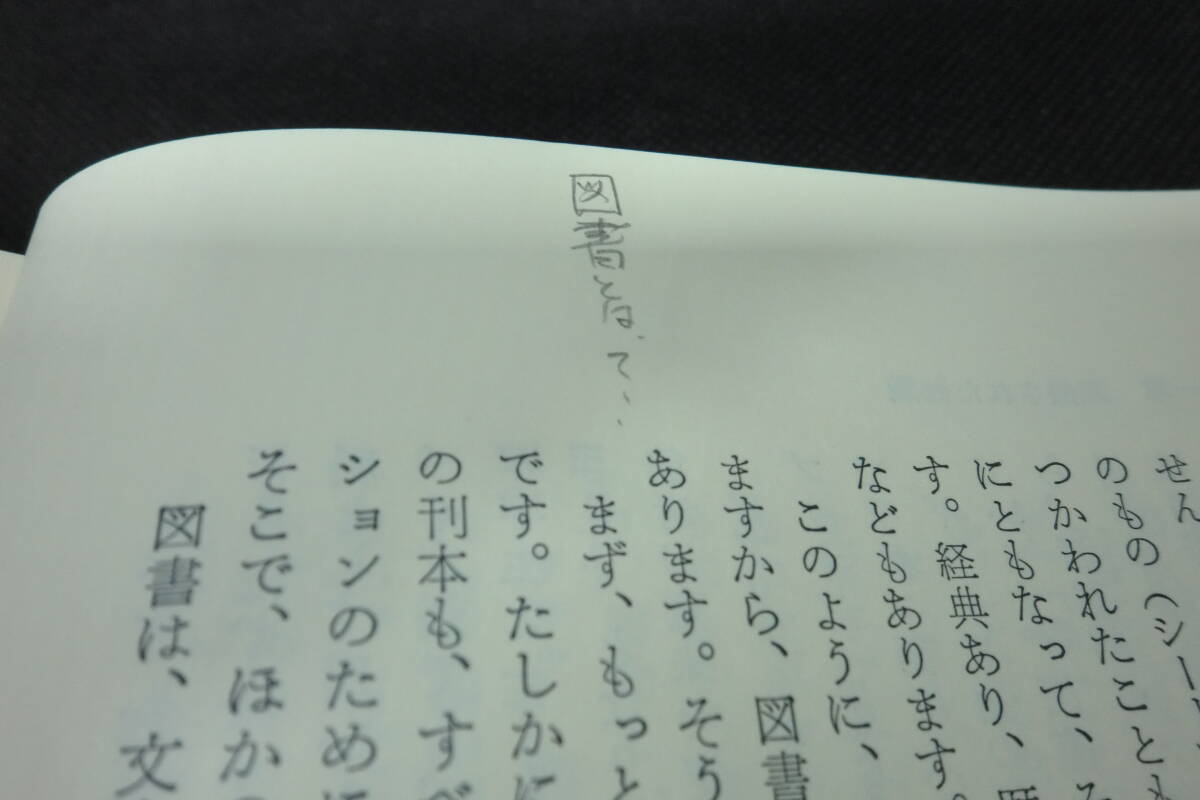 図書
せん
のもの（シー
つかわれたことも
にともなって、そ
す。経典あり、暦
などもあります。
このように、
ますから、図書
あります。そう
まず、もっと
です。たしかに
の刊本も、すべ
ションのために
そこで、ほかの
図書は、文